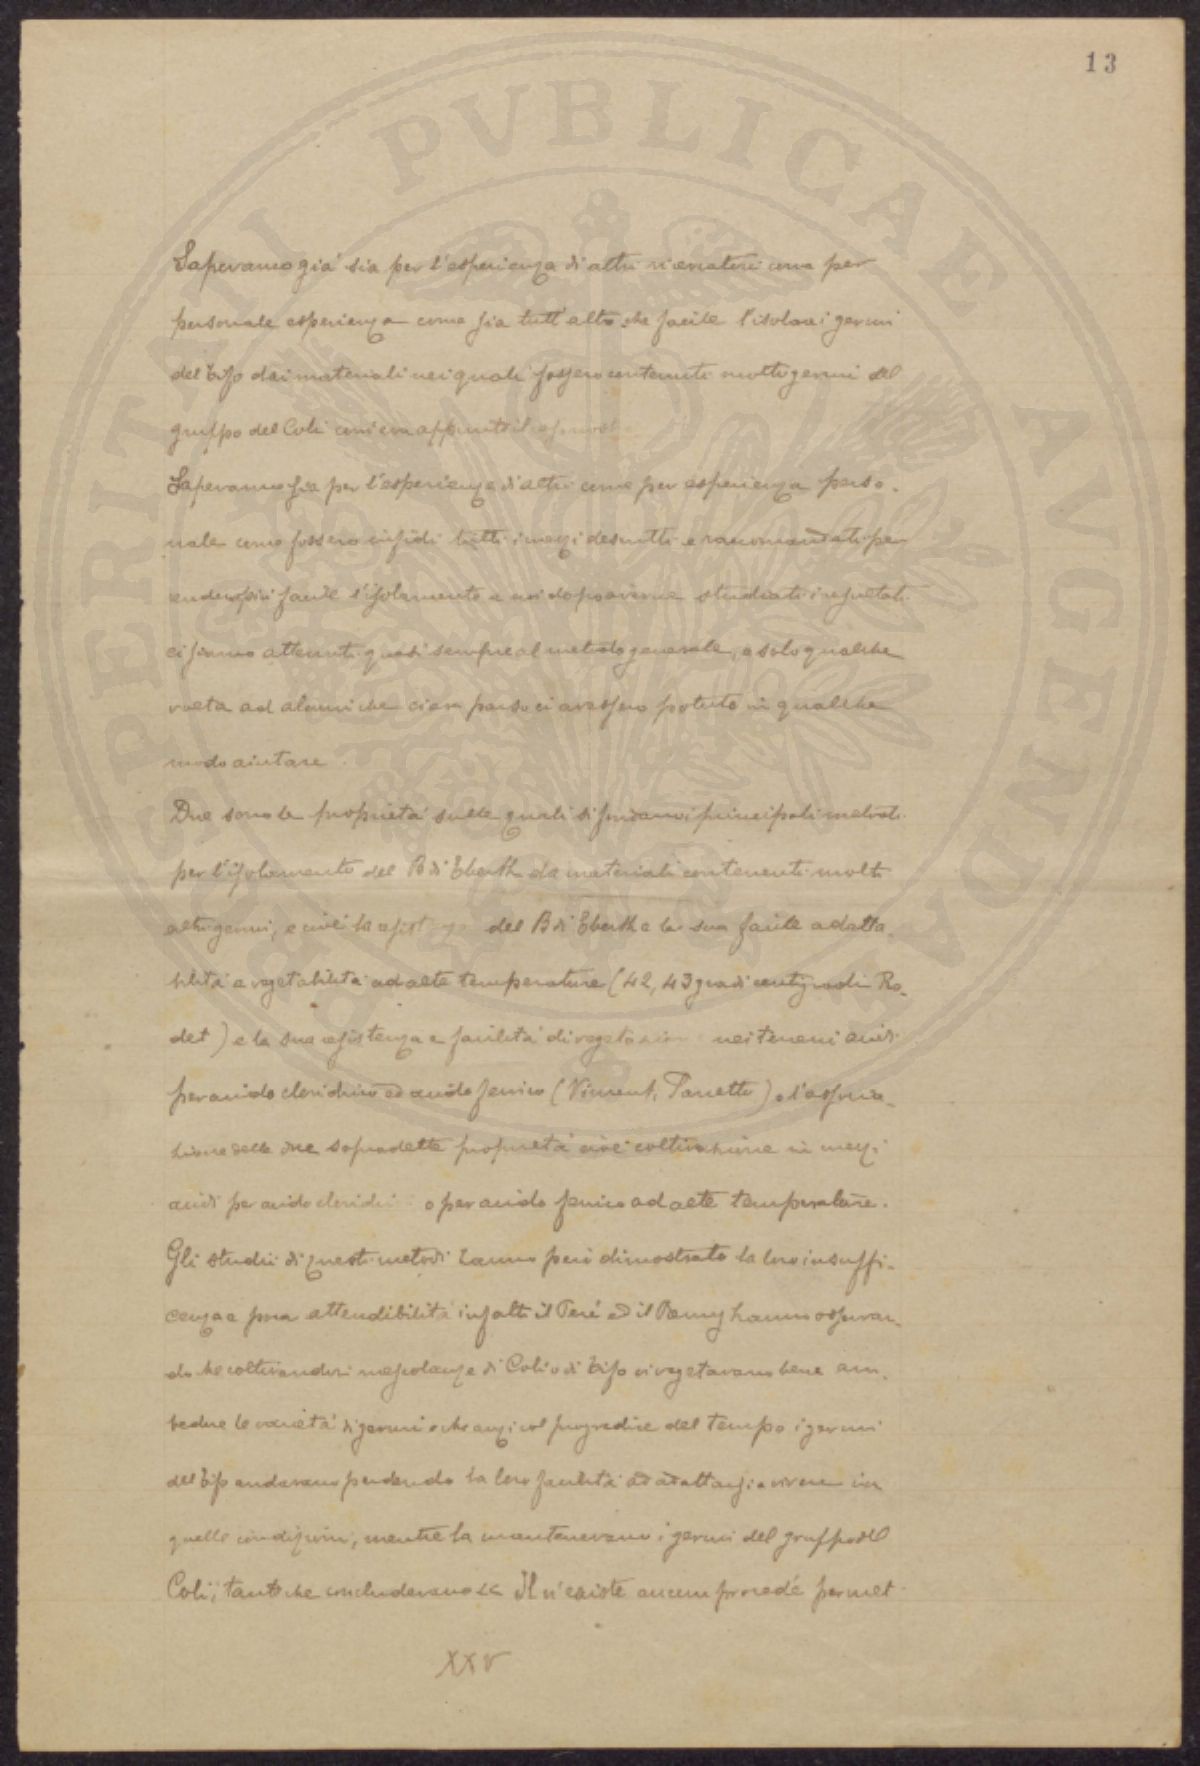 13
Sapevamo già sia per l'esperienza di altri ricercatori come per
personale esperienza come sia tutt'altro che facile l'isolare i germi
del tifo dai materiali nei quali fossero contenuti molti germi del
gruppo del Coli come era appunto il
Sapevamo sia per l'esperienza di altri come per esperienza perso-
nale come fossero infidi tutti i mezzi descritti e raccomandati per
render più facile l'isolamento e noi dopo averne studiati i risultati
ci siamo attenuti quasi sempre al metodo generale, e solo qualche
volta ad alcuni che ci era parso ci avessero potuto in qualche
modo aiutare.
Due sono le proprietá sulle quali si fondano i principali metodi
per l'isolamento del B di Eberth da materiali contenenti molti
altri germi, e cioé la del B di Eberth e la sua facile adatta-
bilitá e vegetabilitá ad alte temperature (42, 43 gradi centigradi Ro-
det) e la sua resistenza e facilitá di vegetazione nei terreni acidi
per acido cloridrico ed acido fenico (Vincent, ) e l'associa-
zione delle due sopradette proprietá cioé coltivazione in mezzi
acidi per acido cloridri o per acido fenico ad alte temperature.
Gli studii di questi metodi hanno peró dimostrato la loro insuffi-
cenza e poca attendibilitá infatti il ed il hanno osservan-
do che coltivandosi mescolanze di Coli o di tifo vi vegetavano bene am-
bedue le varietá di germi e che anzi col progredire del tempo i germi
del tifo andavano perdendo la loro facilitá ad adattarsi a vivere in
quelle condizioni, mentre la mantenevano i germi del gruppo del
Coli, tanto che concludevano << Il n'existe aucun procedé permet-
XXV
PROSPERITATI PVBLICAE AVGENDAE